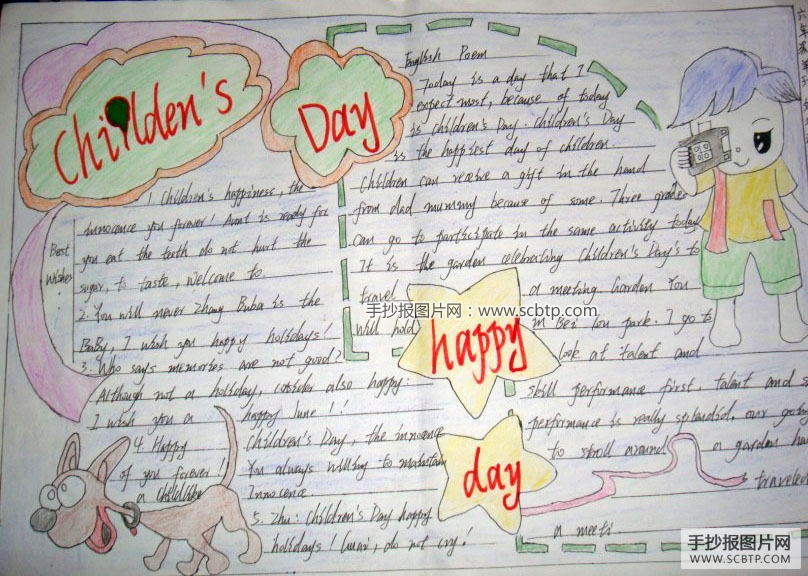 Children's
Day
Best
Wishes
! Children's happiness, the
innocence you forever! Aunt is ready for
you eat the teeth do not hurt the
sugar, to taste, welcome to
2. You will never Zhang Buba is the
BaBy, I wish you happy holidays!
3. Who says memories are not good?
Although not a holiday, consider also happy:
I wish you a happy June!!
4. Happy Children's Day, the innocence
of you forever! You always willing to maintain
a childlike Innocence.
5. Zhu: Children's Day happy
holidays! Guai, do not cry!
English Poem
Today is a day that I
expect most, because of today
is children's Day. Children's Day
is the happiest day of children.
Children can receive a gift in the hand
from dad mummy because of some. Three grades
can go to participate in the same activity today
It is the garden celebrating Children's Day's to
travel a meeting Garden You
will hold in Bei lou park. I go to
look at talent and
skill performance first, talent and s
performance is really splendid, our going
to stroll around a garden ha
traveled
a meeti
happy
day
手抄报图片网：www.scbtp.com
手抄报图片网
WWW.SCBTP.COM